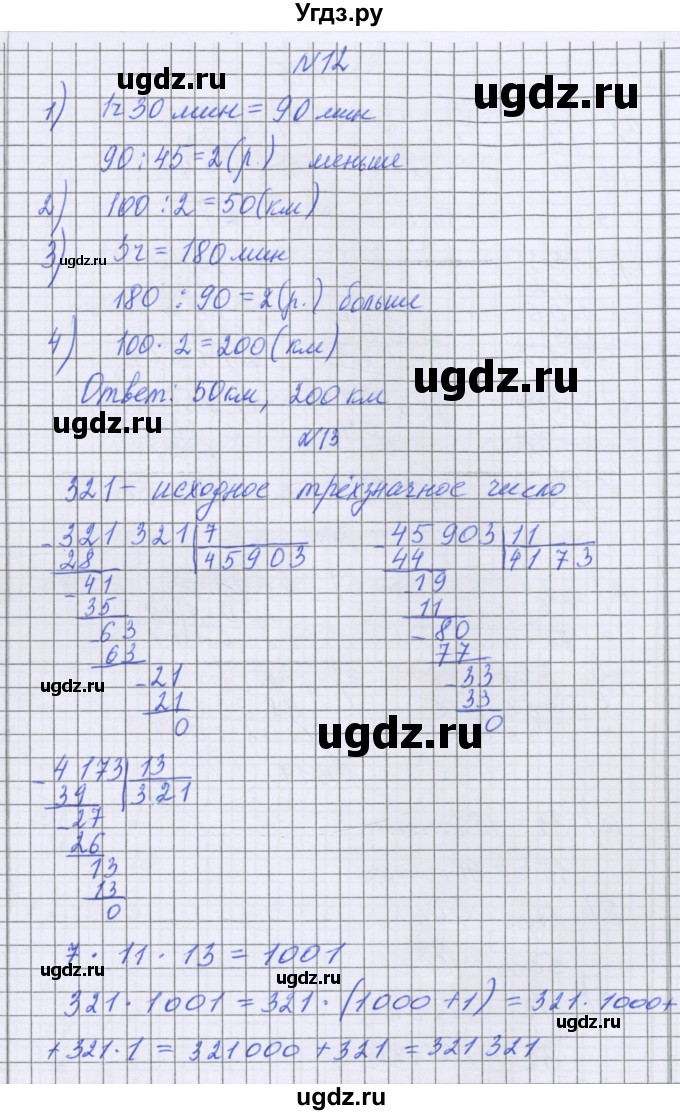 Угдз.ру
N12
ugdz.ru
1) 1ч 30 мин = 90 мин
ugdz.ru
90 : 45 = 2 (р.) меньше
2) 100 : 2 = 50 (км)
3) 3ч = 180 мин
ugdz.ru
180 : 90 = 2 (р.) больше
4) 100 · 2 = 200 (км)
ugdz.ru
Ответ: 50 км, 200 км
ugdz.ru
N13
321 – исходное трёхзначное число
- 321 321 | 7
28 | 45903
- 41
35
- 63
63
- 21
21
0
- 45 903 | 11
44 | 4173
19
11
- 80
77
- 33
33
0
ugdz.ru
ugdz.ru
- 4173 | 13
39 | 321
- 27
26
13
13
0
7 · 11 · 13 = 1001
ugdz.ru
ugdz.ru
321 · 1001 = 321 · (1000 + 1) = 321 · 1000 +
ugdz.ru
+ 321 · 1 = 321000 + 321 = 321 321
ugdz.ru